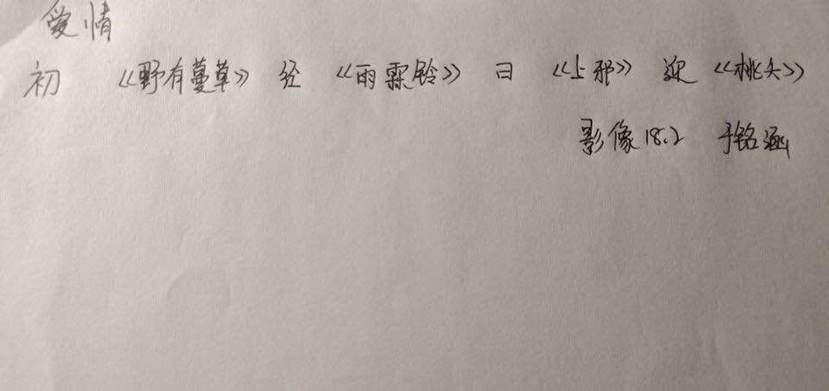 爱情
初 《野有蔓草》 经 《雨霖铃》 曰 《上邪》 迎 《桃夭》
影像18.2 于铭涵